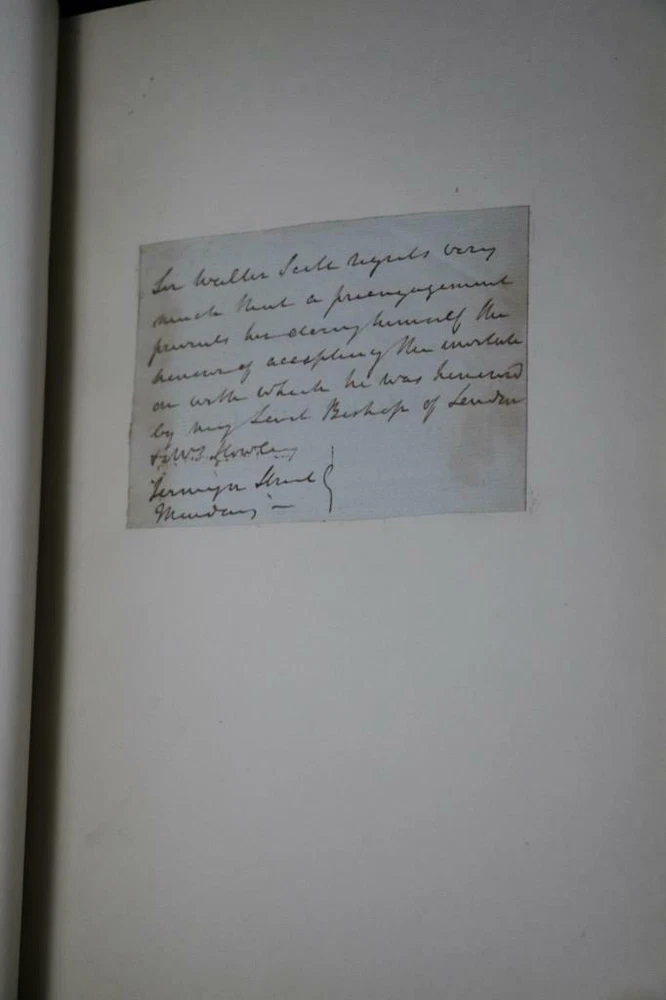 Sir Walter Scott regrets very
much that a preengagement
prevents his doing himself the
honour of accepting the invitati
on with which he was honourd
by my Lord Bishop of London
& Mrs. Howley
Jermyn Street
Monday –